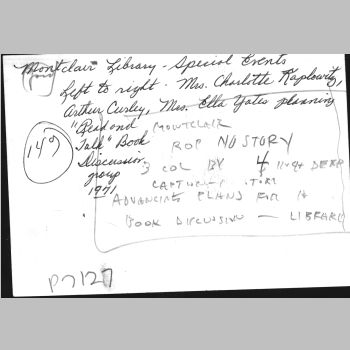 Montclair Library - Special Events
Left to right - Mrs. Charlotte Kaplowitz,
Arthur Curley, Mrs. Ella Yates planning
"Read and
Talk" Book
Discussion
group
1971
149
MONTCLAIR
ROP NO STORY
3 COL BY 4
ADVANCING PLANS FOR A
BOOK DISCUSSION — LIBRARY
P7127